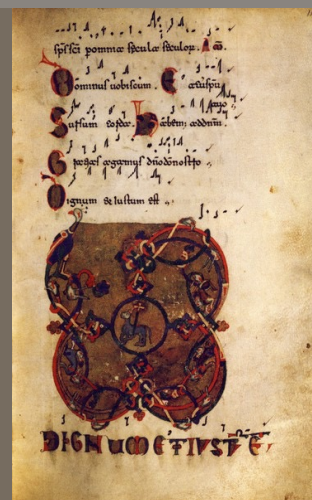 sp̄s sc̄i p omnia secula seculor. Am̄
Dominus uobiscum. Et cū spū
tuo
Sursum corda. Habem; ad dn̄m.
Gracias agamus dn̄o dō nostro
Dignum et iustum est
DIGNUM ET IUSTŪ Ē